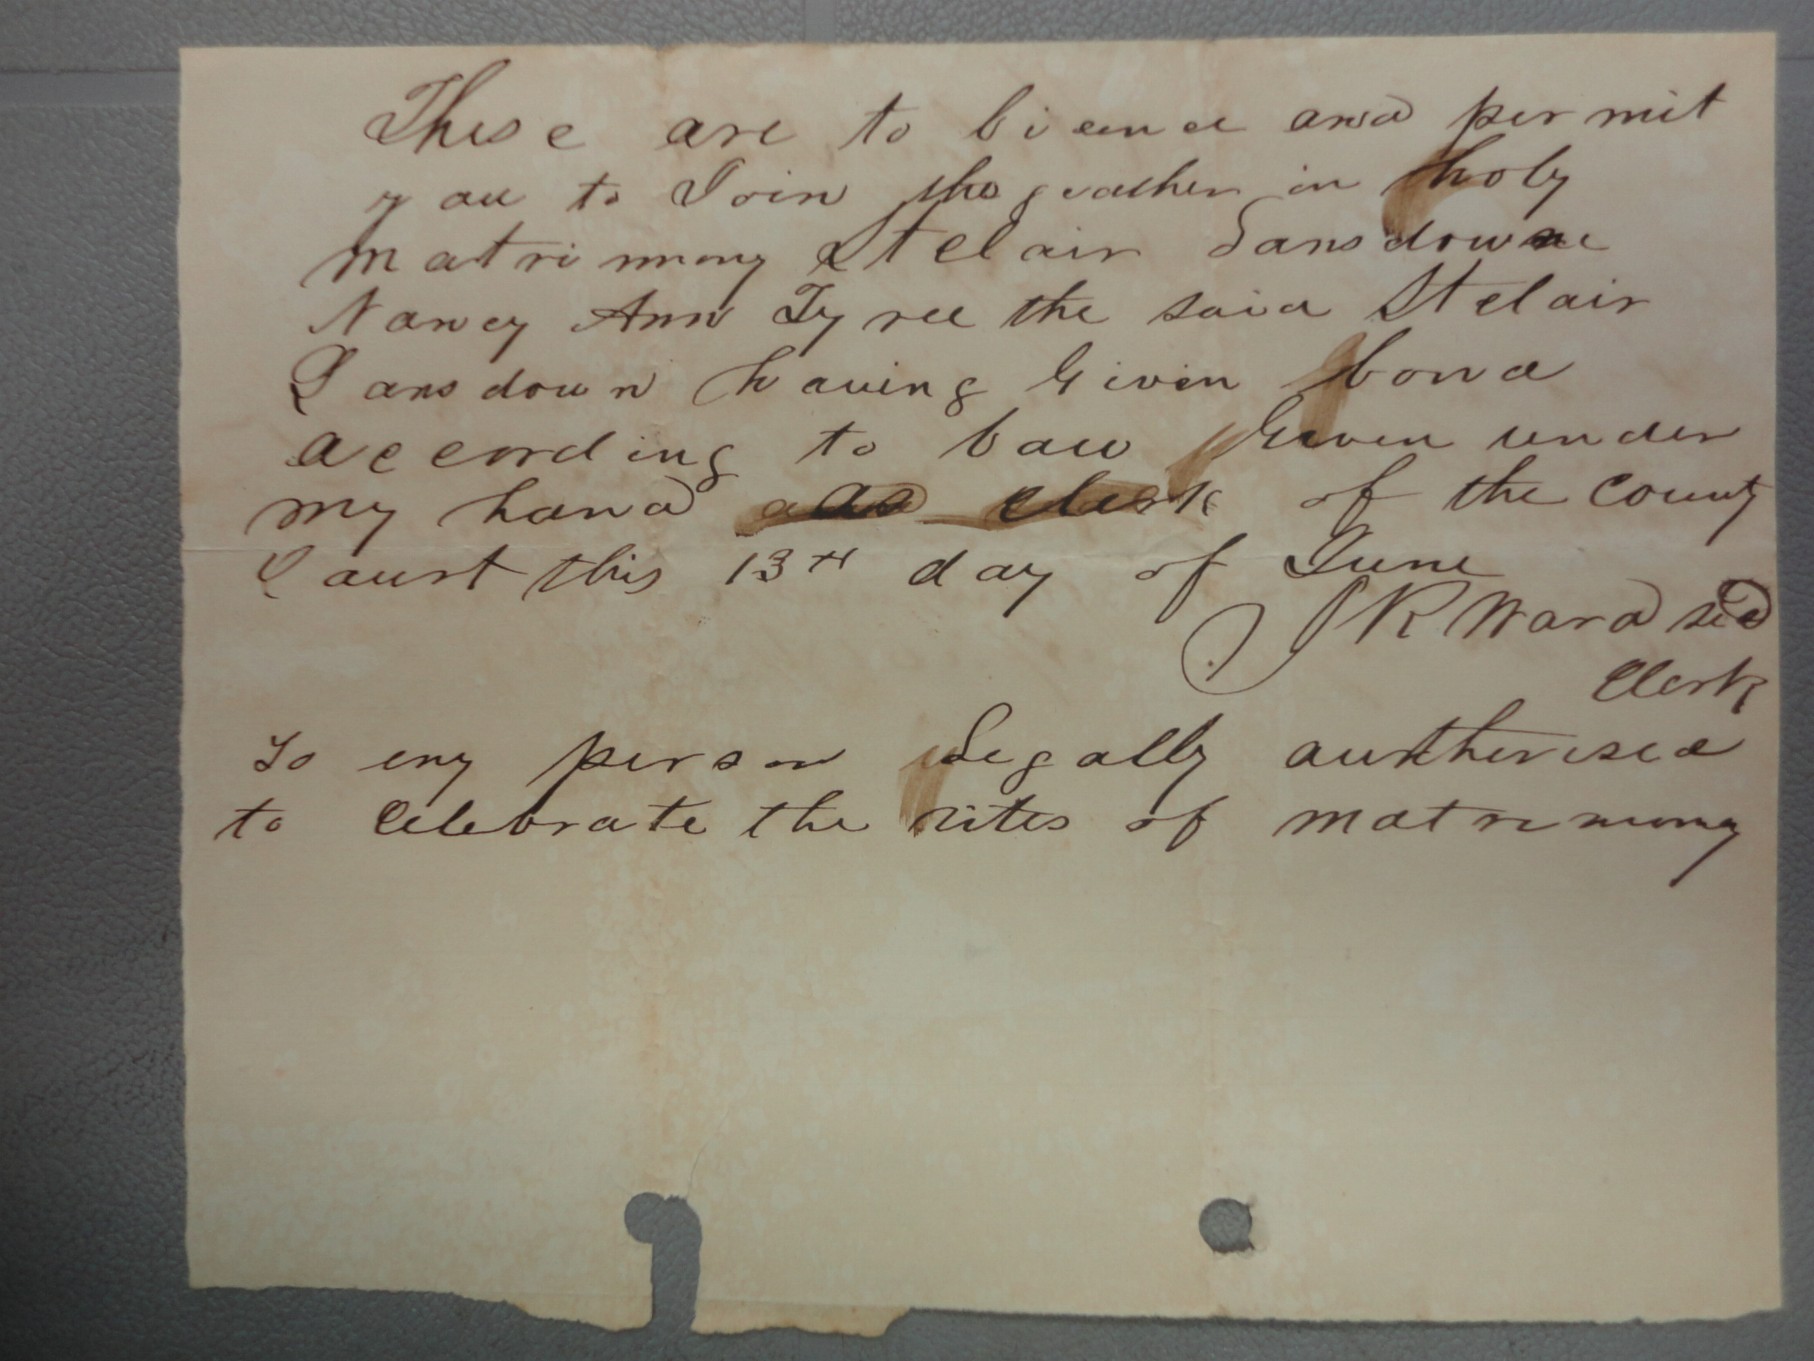 These are to licence and permit
you to Join the geather in holy
matrimony Stclair Lansdown
Nancy Ann Tyree the said Stclair
Lansdown having Given bond
according to law Given under
my hand as clerk of the county
Court this 13th day of June
J R Ward
Clerk
To eny person Legally autherised
to Celebrate the rites of matrimony